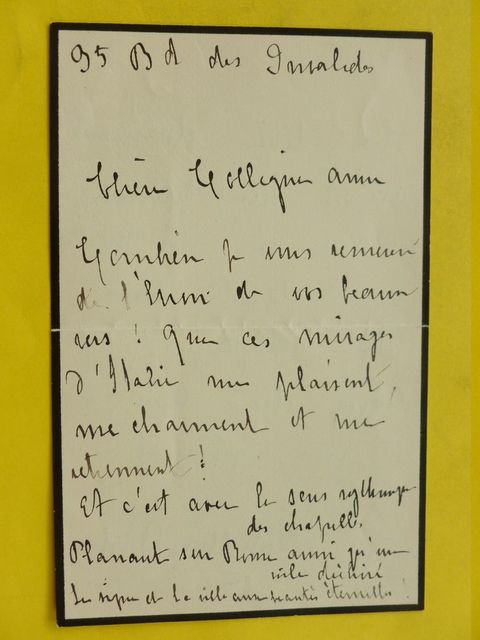 95 Bd des Invalides
Chère Collègue amie
Combien je vous remercie
de l'Envoi de vos beaux
vers ! Que ces mirages
d'Italie me plaisent,
me charment et me
retiennent !
Et c'est avec le sens
des chapell.
Planant sur Rome ainsi qu'un
voile déchiré
Le signe et la ville aux beautés éternelles !